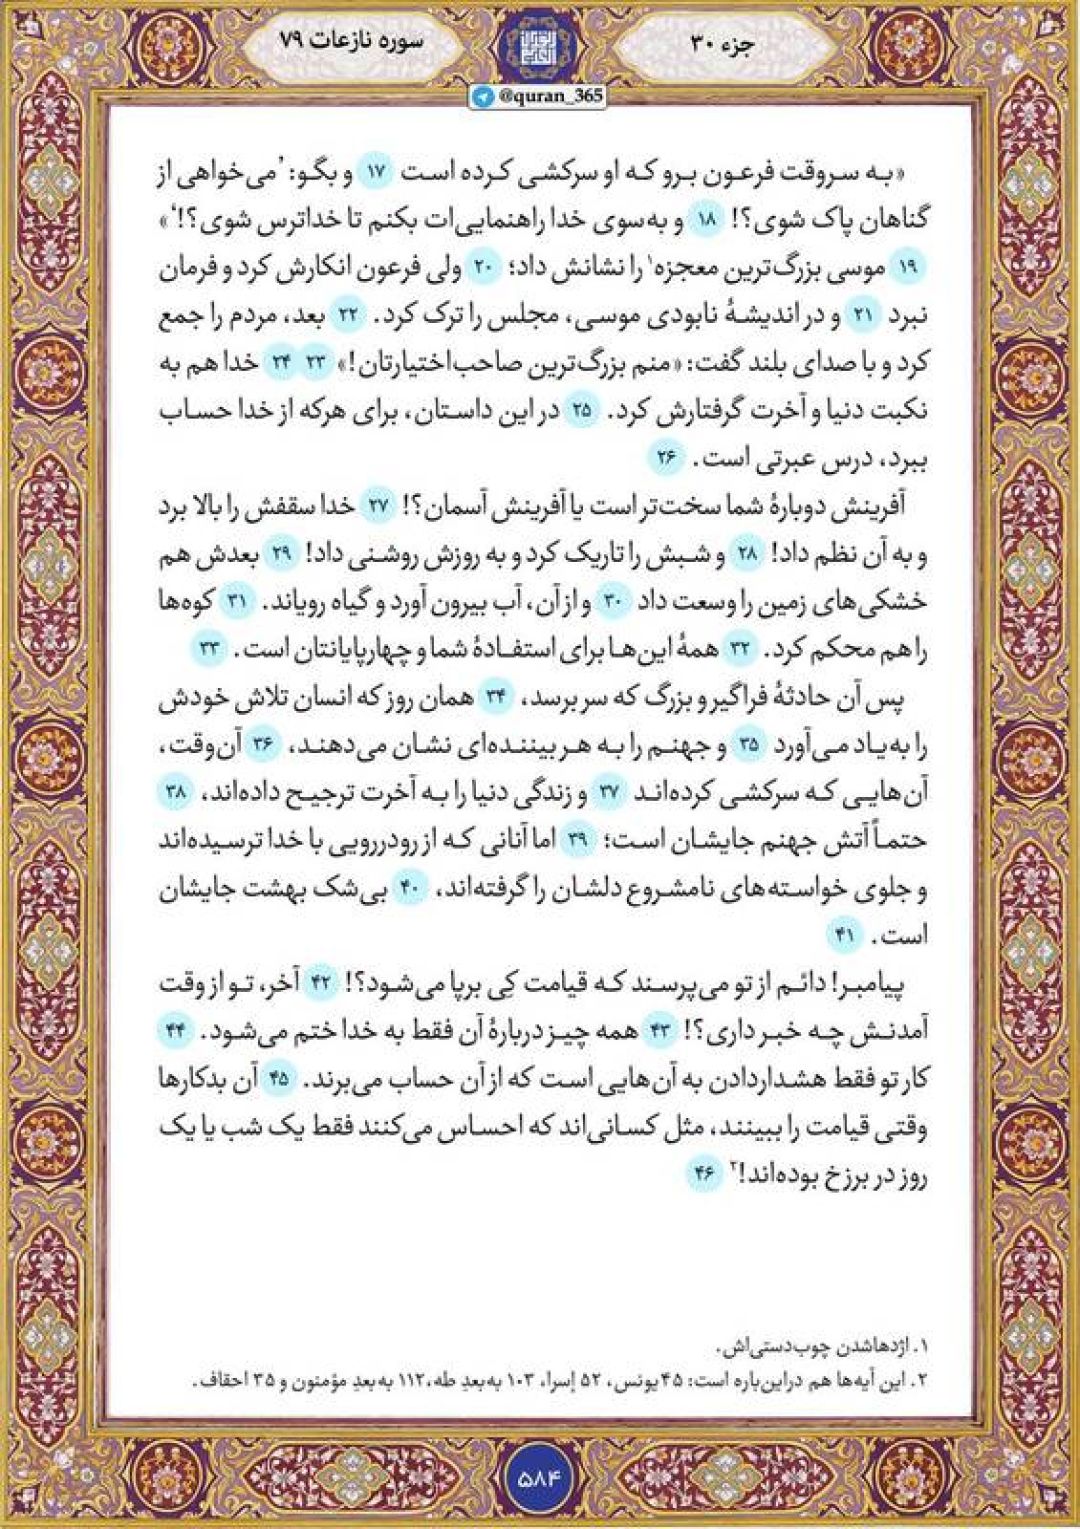 جزء ۳۰
سوره نازعات ۷۹
@quran_365
«به سروقت فرعون برو که او سرکشی کرده است ۱۷ و بگو: ʼمی‌خواهی از
گناهان پاک شوی؟! ۱۸ و به‌سوی خدا راهنمایی‌ات بکنم تا خداترس شوی؟!ʻ»
۱۹ موسی بزرگ‌ترین معجزه۱ را نشانش داد؛ ۲۰ ولی فرعون انکارش کرد و فرمان
نبرد ۲۱ و در اندیشهٔ نابودی موسی، مجلس را ترک کرد. ۲۲ بعد، مردم را جمع
کرد و با صدای بلند گفت: «منم بزرگ‌ترین صاحب‌اختیارتان!» ۲۳ ۲۴ خدا هم به
نکبت دنیا و آخرت گرفتارش کرد. ۲۵ در این داستان، برای هرکه از خدا حساب
ببرد، درس عبرتی است. ۲۶
آفرینش دوبارهٔ شما سخت‌تر است یا آفرینش آسمان؟! ۲۷ خدا سقفش را بالا برد
و به آن نظم داد! ۲۸ و شبش را تاریک کرد و به روزش روشنی داد! ۲۹ بعدش هم
خشکی‌های زمین را وسعت داد ۳۰ و از آن، آب بیرون آورد و گیاه رویاند. ۳۱ کوه‌ها
را هم محکم کرد. ۳۲ همهٔ این‌ها برای استفادهٔ شما و چهارپایانتان است. ۳۳
پس آن حادثهٔ فراگیر و بزرگ که سر برسد، ۳۴ همان روز که انسان تلاش خودش
را به‌یاد می‌آورد ۳۵ و جهنم را به هر بیننده‌ای نشان می‌دهند، ۳۶ آن‌وقت،
آن‌هایی که سرکشی کرده‌اند ۳۷ و زندگی دنیا را به آخرت ترجیح داده‌اند، ۳۸
حتماً آتش جهنم جایشان است؛ ۳۹ اما آنانی که از رودررویی با خدا ترسیده‌اند
و جلوی خواسته‌های نامشروع دلشان را گرفته‌اند، ۴۰ بی‌شک بهشت جایشان
است. ۴۱
پیامبر! دائم از تو می‌پرسند که قیامت کِی برپا می‌شود؟! ۴۲ آخر، تو از وقت
آمدنش چه خبر داری؟! ۴۳ همه چیز دربارهٔ آن فقط به خدا ختم می‌شود. ۴۴
کار تو فقط هشداردادن به آن‌هایی است که از آن حساب می‌برند. ۴۵ آن بدکارها
وقتی قیامت را ببینند، مثل کسانی‌اند که احساس می‌کنند فقط یک شب یا یک
روز در برزخ بوده‌اند!۲ ۴۶
۱. اژدهاشدن چوب‌دستی‌اش.
۲. این آیه‌ها هم دراین‌باره است: ۴۵ یونس، ۵۲ إسرا، ۱۰۳ به‌بعدِ طه، ۱۱۲ به‌بعدِ مؤمنون و ۳۵ احقاف.
۵۸۴